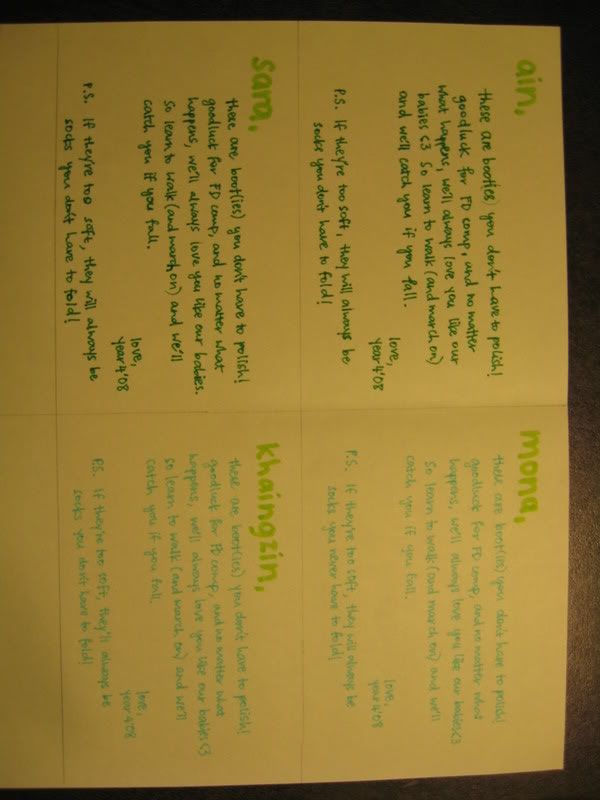 ain,
these are boot(ies) you don't have to polish!
goodluck for FD comp, and no matter
what happens, we'll always love you like our
babies <3 So learn to walk (and march on)
and we'll catch you if you fall.
love,
year4'08
P.S. If they're too soft, they will always be
socks you don't have to fold!
mona,
these are boot(ies) you don't have to polish!
goodluck for FD comp, and no matter what
happens, we'll always love you like our babies<3
So learn to walk (and march on) and we'll
catch you if you fall.
love,
year4'08
P.S. If they're too soft, they will always be
socks you never have to fold!
sara,
these are boot(ies) you don't have to polish!
goodluck for FD comp, and no matter what
happens, we'll always love you like our babies.
So learn to walk (and march on) and we'll
catch you if you fall.
love,
year4'08
P.S. If they're too soft, they will always be
socks you don't have to fold!
khaingzin,
these are boot(ies) you don't have to polish!
goodluck for FD comp, and no matter what
happens, we'll always love you like our babies<3
So learn to walk (and march on) and we'll
catch you if you fall.
love,
year4'08
P.S. If they're too soft, they'll always be
socks you don't have to fold!